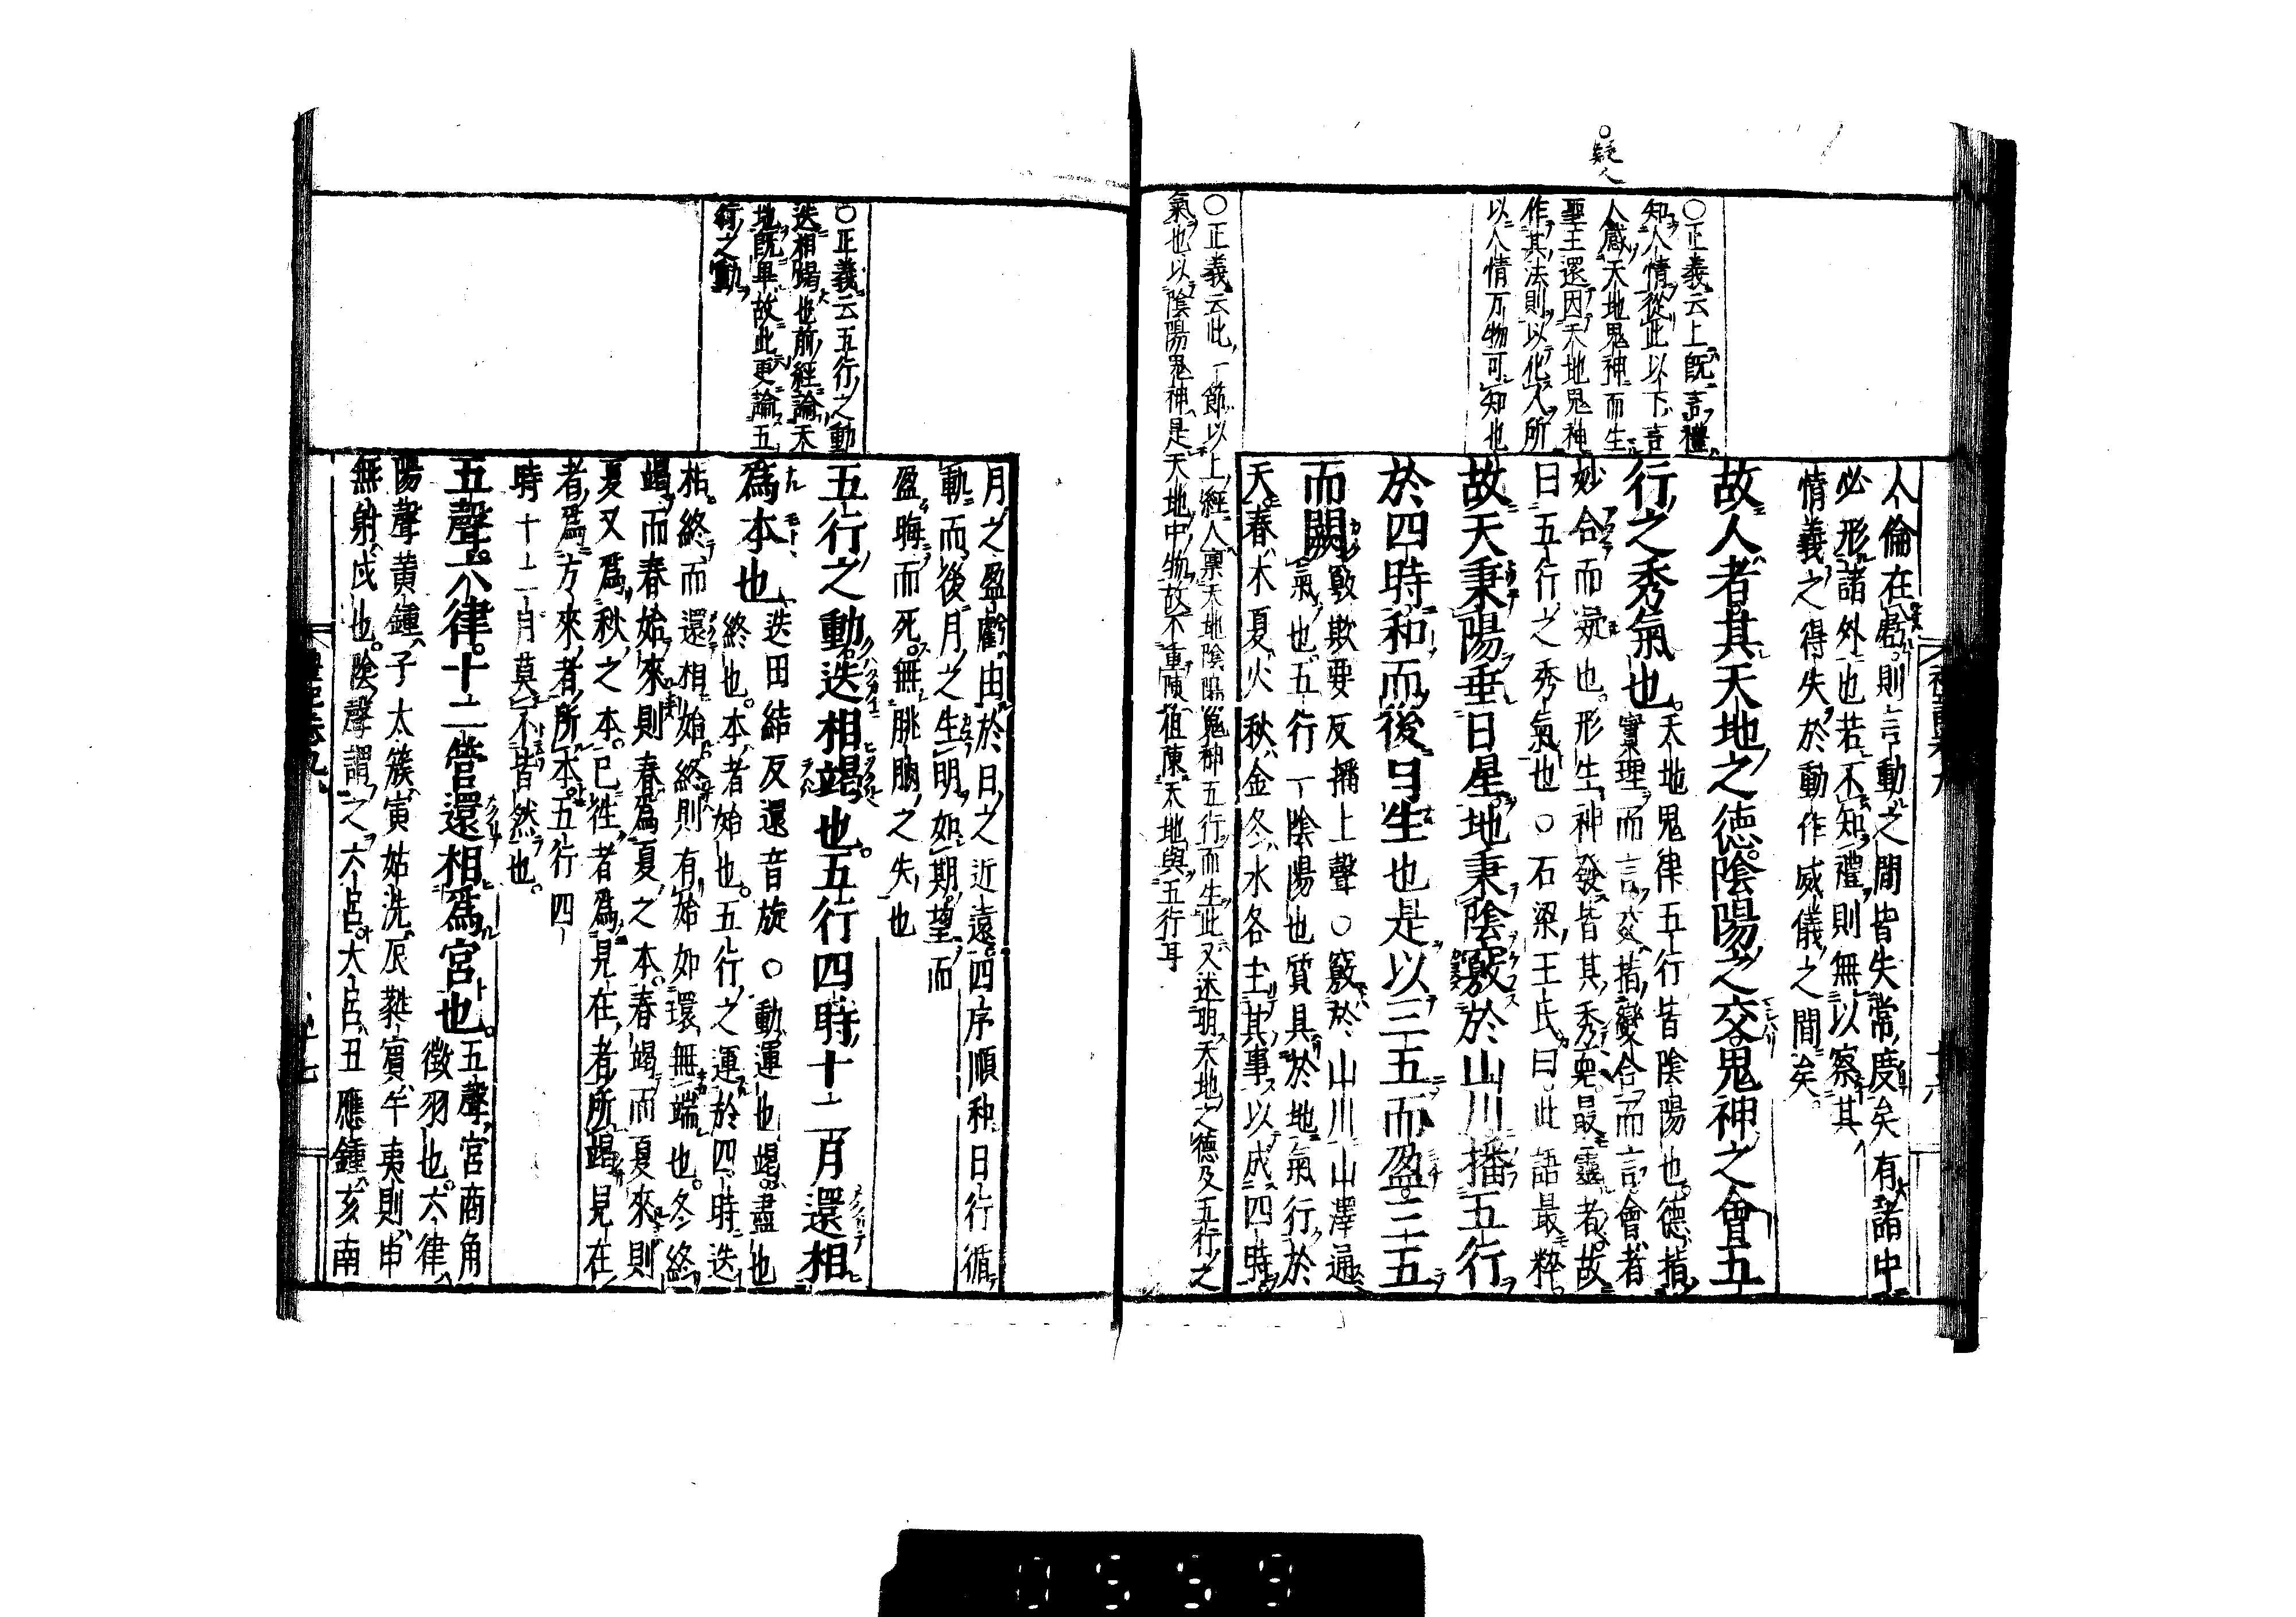 ○正義云上既言禮
知人情從此以下言
人感天地鬼神而生
聖王還因天地鬼神
作其法則以化人所
以人情万物可知也
○正義云此一節以上經人稟天地陰陽鬼神五行而生此又述明天地之德及五行之
氣也以陰陽鬼神是天地中物故不重陳祖陳天地與五行耳
人倫在焉則言動之間皆失常度矣有諸中
必形諸外也若不知禮則無以察其
情義之得失於動作威儀之間矣
故人者其天地之德陰陽之交鬼神之會五
行之秀氣也天地鬼神五行皆陰陽也德指
實理而言交指變合而言會者
妙合而凝也形生神發皆其秀而最靈者故
曰五行之秀氣也○石梁王氏曰此語最粹
故天秉陽垂日星地秉陰竅於山川播五行
於四時和而后月生也是以三五而盈三五
而闕竅欺要反播上聲○竅於山川山澤通
氣也五行一陰陽也質具於地氣行於
天春木夏火秋金冬水各主其事以成四時
○正義云五行之動
迭相竭也前經論天
地既畢故此更論五
行之動
月之盈虧由於日之近遠四序順和日行循
軌而後月之生明如期望而
盈晦而死無朓朒之失也
五行之動迭相竭也五行四時十二月還相
爲本也迭田結反還音旋○動運也竭盡也
終也本者始也五行之運於四時迭
相終而還相始終則有始如環無端也冬終
竭而春始來則春爲夏之本春竭而夏來則
夏又爲秋之本已徃者爲見在者所竭見在
者爲方來者所本五行四
時十二月莫不皆然也
五聲六律十二管還相爲宮也五聲宮商角
徵羽也六律
陽聲黃鍾子太簇寅姑洗辰蕤賓午夷則申
無射戌也陰聲謂之六呂大呂丑應鍾亥南